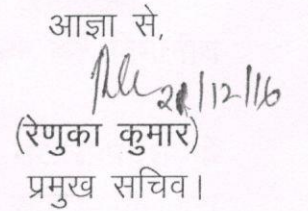 आज्ञा से,
21/12/16
(रेणुका कुमार)
प्रमुख सचिव।